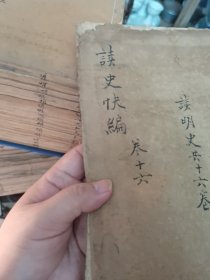 讀史快編 卷十六
讀明史共十六卷